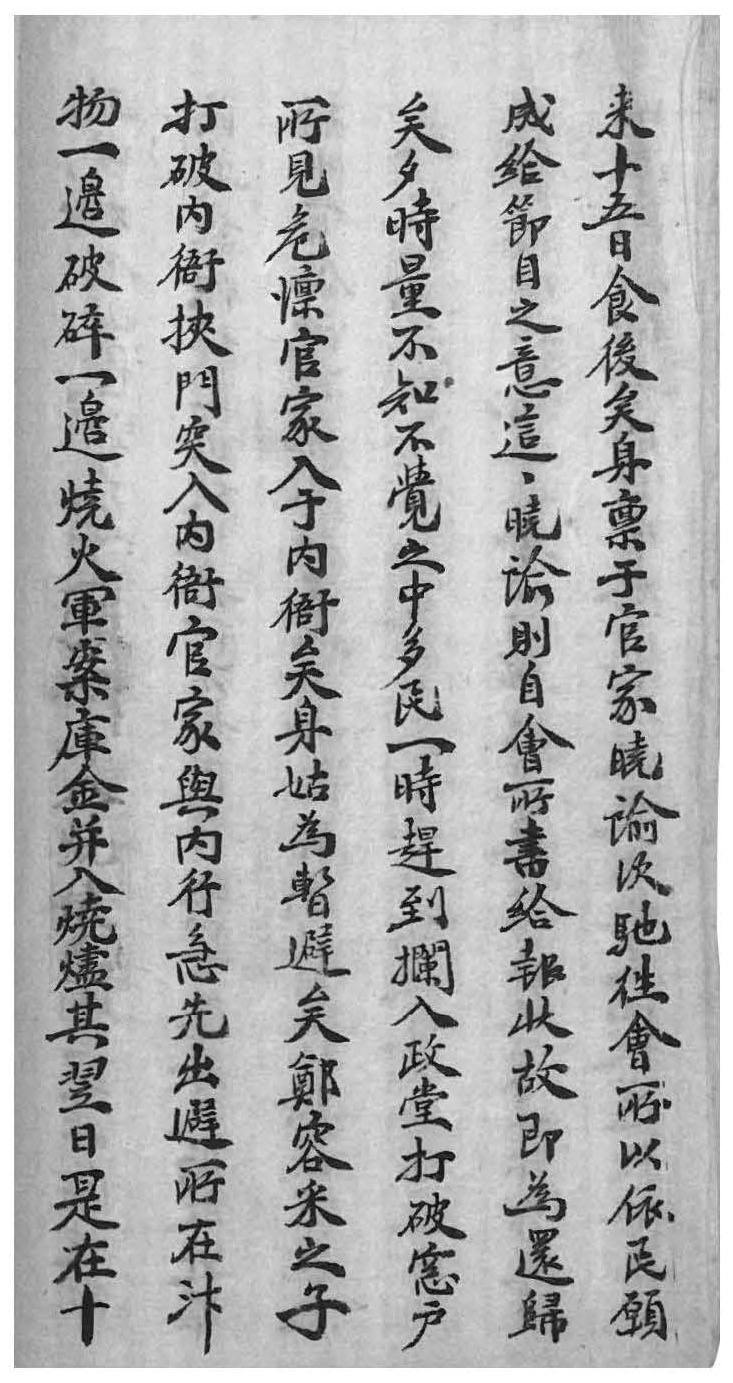 来十五日食後矣身禀于官家曉諭次馳往會所以依民願
成給節目之意這〻曉諭則自會所書給報狀故即為還歸
矣夕時量不知不覺之中多民一時趕到攔入政堂打破窓戶
所見危懍官家入于內衙矣身姑為暫避矣鄭容采之子
打破內衙挾門突入內衙官家與內行急先出避所在汁
物一邊破碎一邊燒火軍案庫金并入燒燼其翌日是在十